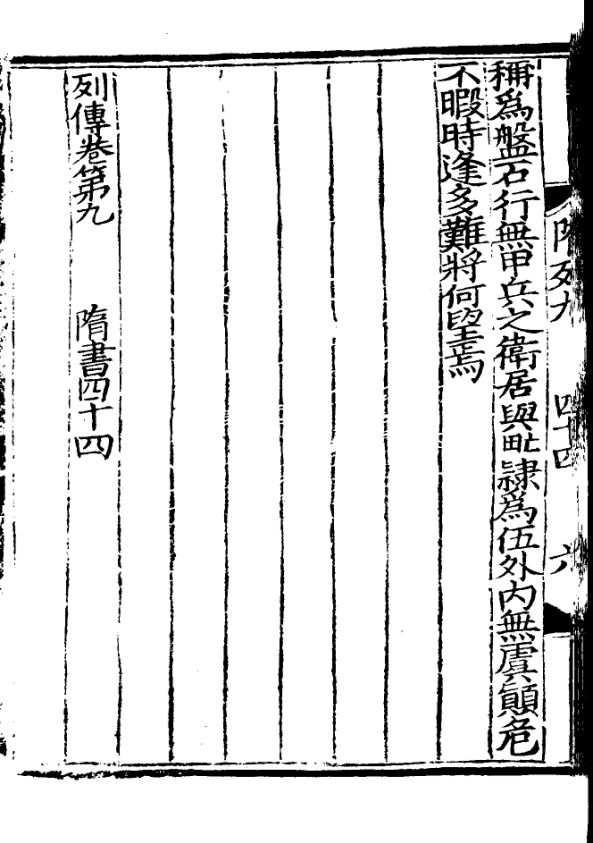 隋列九 四十四 六
稱爲盤石行無甲兵之衛居與甿隷爲伍外内無虞顚危
不暇時逢多難將何望焉
列傳卷第九 隋書四十四